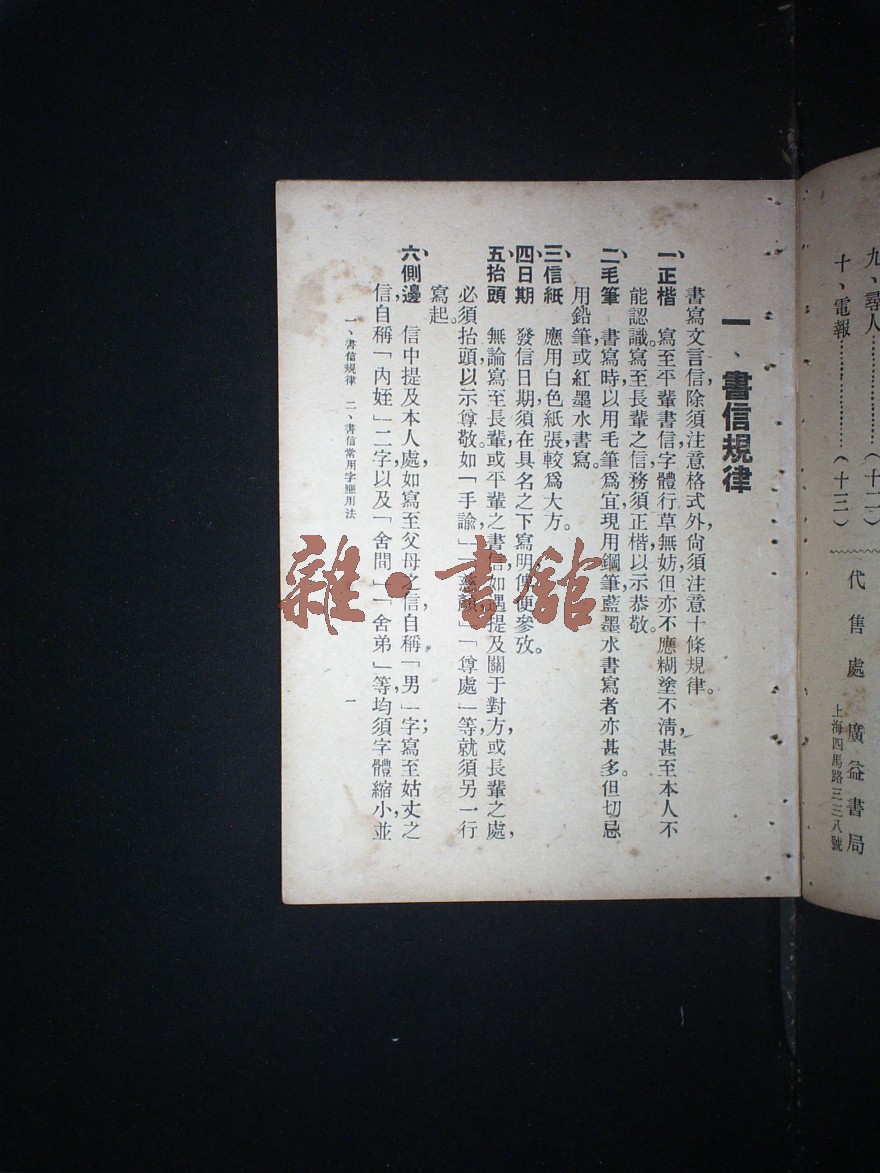 九、尋人……………(十二)
十、電報……………(十三)
代售處 廣益書局
上海四馬路三三八號
一、書信規律
書寫文言信,除須注意格式外,尙須注意十條規律。
一、正楷 寫至平輩書信,字體行草無妨,但亦不應糊塗不淸,甚至本人不
能認識。寫至長輩之信,務須正楷,以示恭敬。
二、毛筆 書寫時,以用毛筆爲宜,現用鋼筆藍墨水書寫者亦甚多。但切忌
用鉛筆或紅墨水書寫。
三、信紙 應用白色紙張,較爲大方。
四、日期 發信日期,須在具名之下寫明,俾便參攷。
五、抬頭 無論寫至長輩或平輩之書信,如遇提及關于對方或長輩之處,
必須抬頭,以示尊敬。如「手諭」「慈顏」「尊處」等,就須另一行
寫起。
六、側邊 信中提及本人處,如寫至父母之信,自稱「男」字;寫至姑丈之
信,自稱「內姪」二字,以及「舍間」「舍弟」等,均須字體縮小,並
一、書信規律 二、書信常用字應用法
一
雜·書館